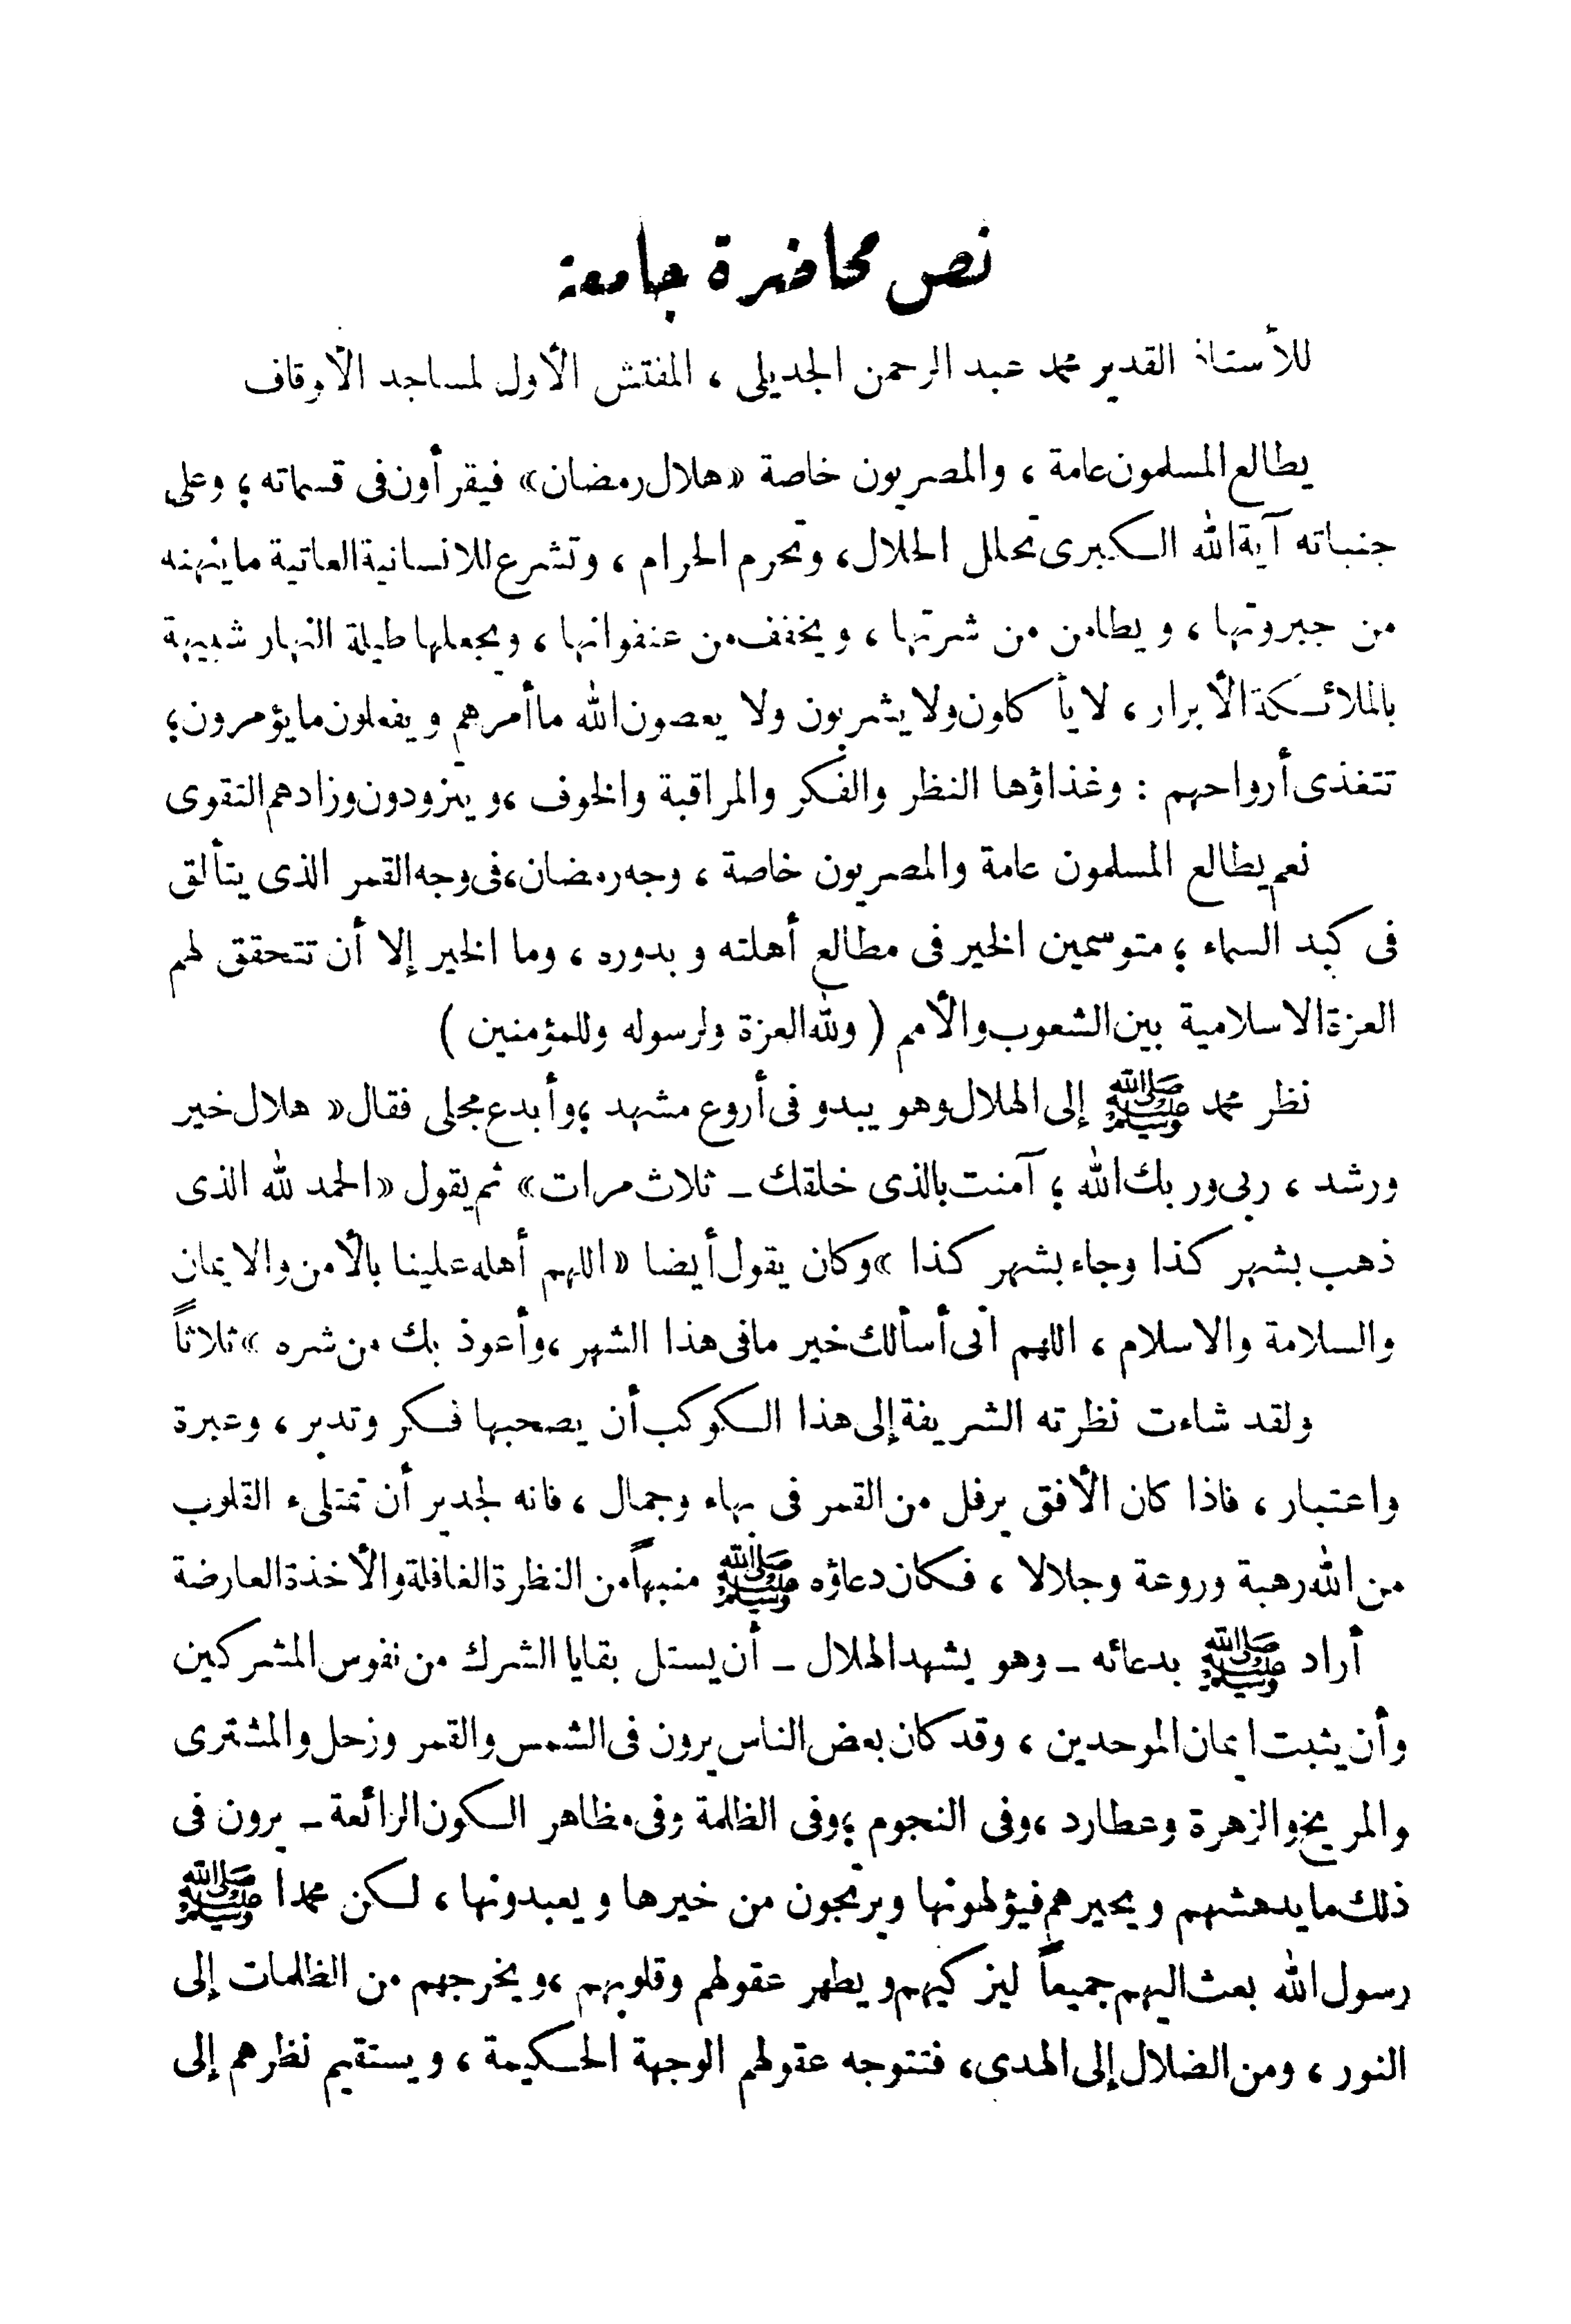 نص محاضرة جامعة
للأستاذ القدير محمد عبد الرحمن الجديلى ، المفتش الأول لمساجد الأوقاف
يطالع المسلمون عامة ، والمصريون خاصة «هلال رمضان» فيقرأون فى قسماته ؛ وعلى
جنباته آية الله الكبرى تحلل الحلال، وتحرم الحرام ، وتشرع للانسانية العاتية ما ينهنه
من جبروتها ، ويطامن من شرتها ، ويخفف من عنفوانها ، ويجعلها طيلة النهار شبيهة
بالملائكة الأبرار ، لا يأكلون ولا يشربون ولا يعصون الله ما أمرهم ويفعلون ما يؤمرون؛
تتغذى أرواحهم : وغذاؤها النظر والفكر والمراقبة والخوف ،ويتزودون وزادهم التقوى
نعم يطالع المسلمون عامة والمصريون خاصة ، وجه رمضان،فى وجه القمر الذى يتألق
فى كبد السماء ؛ متوسمين الخير فى مطالع أهلته وبدوره ، وما الخير إلا أن تتحقق لهم
العزة الاسلامية بين الشعوب والأمم ( ولله العزة ولرسوله وللمؤمنين )
نظر محمد ﷺ إلى الهلال وهو يبدو فى أروع مشهد ؛وأبدع مجلى فقال« هلال خير
ورشد ، ربى وربك الله ؛ آمنت بالذى خلقك ـ ثلاث مرات» ثم يقول «الحمد لله الذى
ذهب بشهر كذا وجاء بشهر كذا »وكان يقول أيضا «اللهم أهله علينا بالأمن والايمان
والسلامة والاسلام ، اللهم انى أسألك خير مافى هذا الشهر ،وأعوذ بك من شره »ثلاثاً
ولقد شاءت نظرته الشريفة إلى هذا الكوكب أن يصحبها فكر وتدبر ، وعبرة
واعتبار ، فاذا كان الأفق يرفل من القمر فى بهاء وجمال ، فانه لجدير أن تمتلىء القلوب
من الله رهبة وروعة وجلالا ، فكان دعاؤه ﷺ منبهاً من النظرة الغافلة والأخذة العارضة
أراد ﷺ بدعائه ـ وهو يشهد الهلال ـ أن يستل بقايا الشرك من نفوس المشركين
وأن يثبت ايمان الموحدين ، وقد كان بعض الناس يرون فى الشمس والقمر وزحل والمشترى
والمريخ والزهرة وعطارد ،وفى النجوم ؛وفى الظلمة وفى مظاهر الكون الرائعة ـ يرون فى
ذلك ما يدهشهم ويحيرهم فيؤلهونها ويرتجون من خيرها ويعبدونها ، لكن محمدا ﷺ
رسول الله بعث اليهم جميعاً ليزكيهم ويطهر عقولهم وقلوبهم ،ويخرجهم من الظلمات إلى
النور ، ومن الضلال إلى الهدى، فتتوجه عقولهم الوجهة الحكيمة ، ويستقيم نظرهم إلى